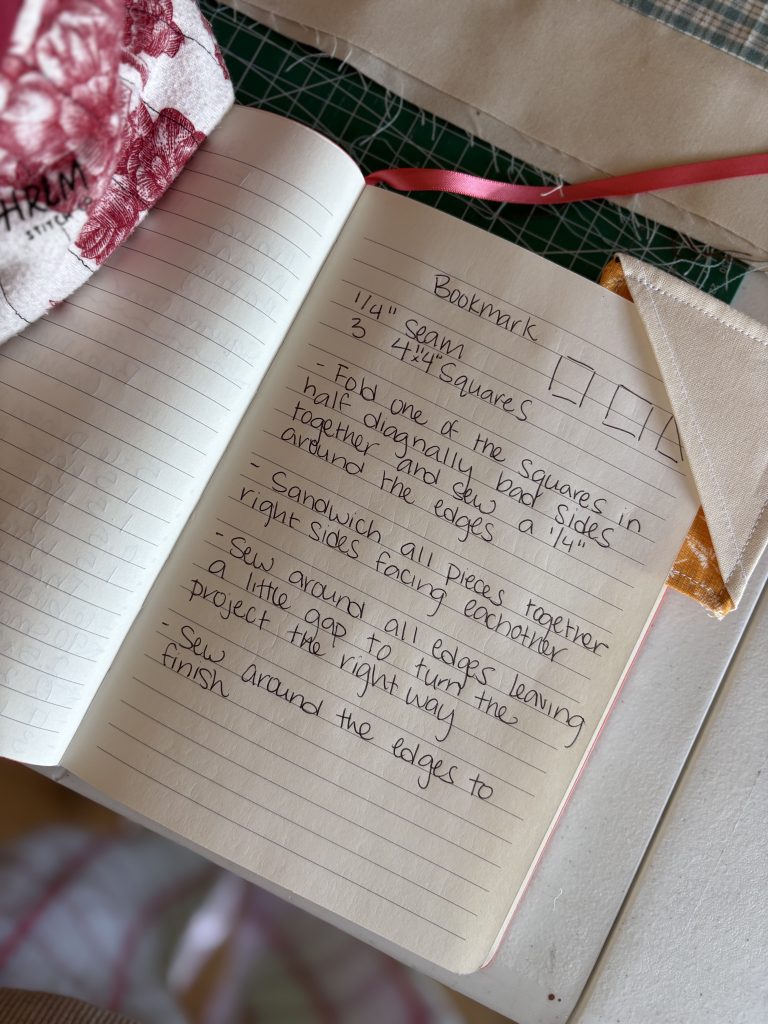 HRLM
STITCH
Bookmark
1/4" Seam
3 4"x4" Squares
- Fold one of the squares in
half diagnally bad sides
together and sew a 1/4"
around the edges
- Sandwich all pieces together
right sides facing eachother
- Sew around all edges leaving
a little gap to turn the
project the right way
- Sew around the edges to
finish